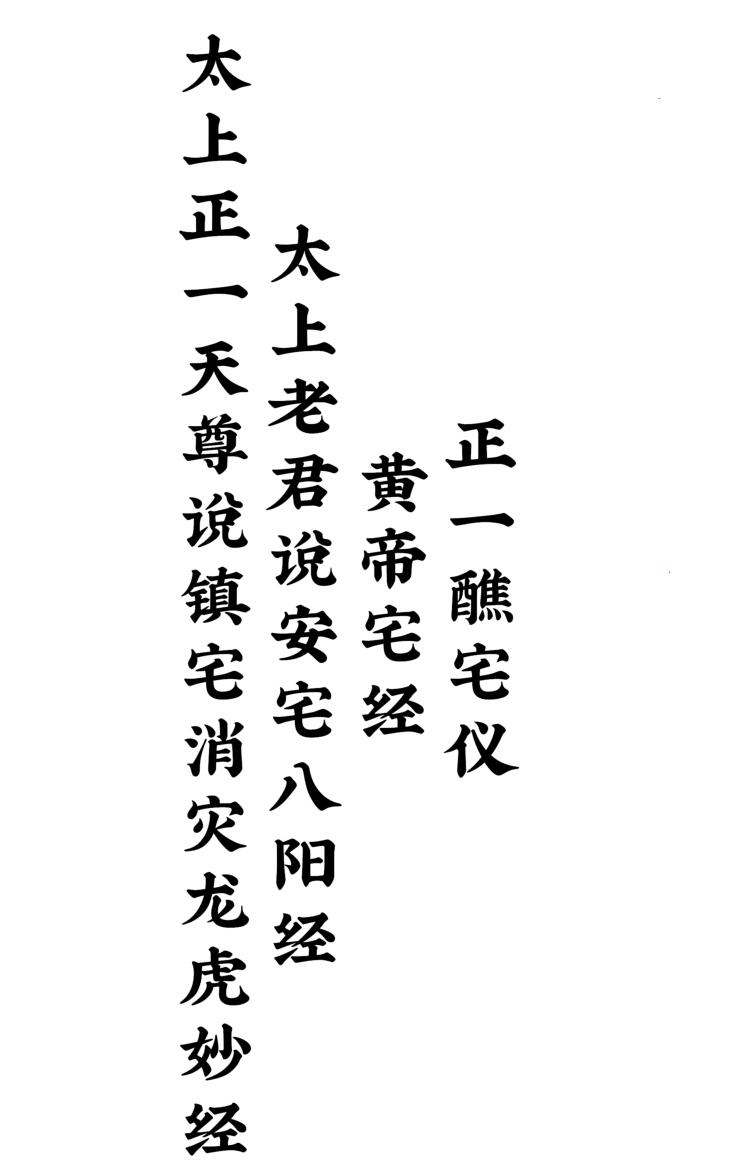 正一醮宅仪
黄帝宅经
太上老君说安宅八阳经
太上正一天尊说镇宅消灾龙虎妙经